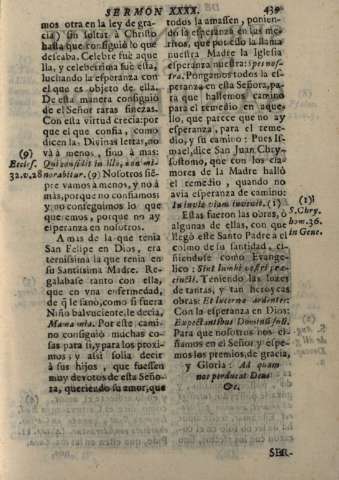 SERMON XXXX.
439
mos otra en la ley de gra-
cia) sin soltar à Christo
hasta que consiguiò lo que
deseaba. Celebre fuè aque
lla, y celeberrima fuè esta,
luchando la esperança con
el que es objeto de ella.
De esta manera consiguiò
de el Señor raras finezas.
Con esta virtud crecia: por
que el que confia, como
dicen las Divinas letras, no
và à menos, sino à mas:
Qui confidit in illo, non mi-
norabitur. (9) Nosotros siẽ-
pre vamos à menos, y no à
màs, porque no confiamos
y no conseguimos lo que
queremos, porque no ay
esperanza en nosotros.
A mas de la que tenia
San Felipe en Dios, era
ternissima la que tenia en
su Santissima Madre. Re-
galabase tanto con ella,
que en vna enfermedad,
de q̃ le sanò, como si fuera
Niño balvuciente, le decia,
Mama mia. Por este cami-
no consiguiò muchas co-
sas para si, y para los proxi-
mos; y assi solia decir
à sus hijos, que fuessen
muy devotos de esta Seño-
ra, queriendo su amor, que
(9)
Eccles.
32.v.28
todos la amassen, ponien-
do la esperanza en las me-
ritos, que por esso la llama
nuestra Madre la Iglesia
esperanza nuestra: spes nos-
tra. Pongamos todos la es-
peranza en esta Señora, pa-
ra que hallemos camino
para el remedio en aque-
llo, que parece que no ay
esperanza, para el reme-
dio, y sin camino: Pues Is-
mael, dice San Juan Chry-
sostomo, que con los cla-
mores de la Madre hallò
el remedio, quando no
avia esperanza de camino:
In invia viam invenit. (1)
Estas fueron las obras, ò
algunas de ellas, con que
llegò este Santo Padre à el
colmo de su santidad, ci-
ñiendose como Evange-
lico: Sint lumbi vestri præ-
cincti. Teniendo las luzes
de tantas, y tan heroycas
obras: Et lucernæ ardentes:
Con la esperanza en Dios:
Expectantibus Dominũ suũ.
Para que nosotros nos ci-
ñamos en el Señor y espe-
mos los premios, de gracia,
y Gloria: Ad quam
nos perducat Deus
&c.
(1)
S. Chry.
hom. 36.
in Gene.
SER-